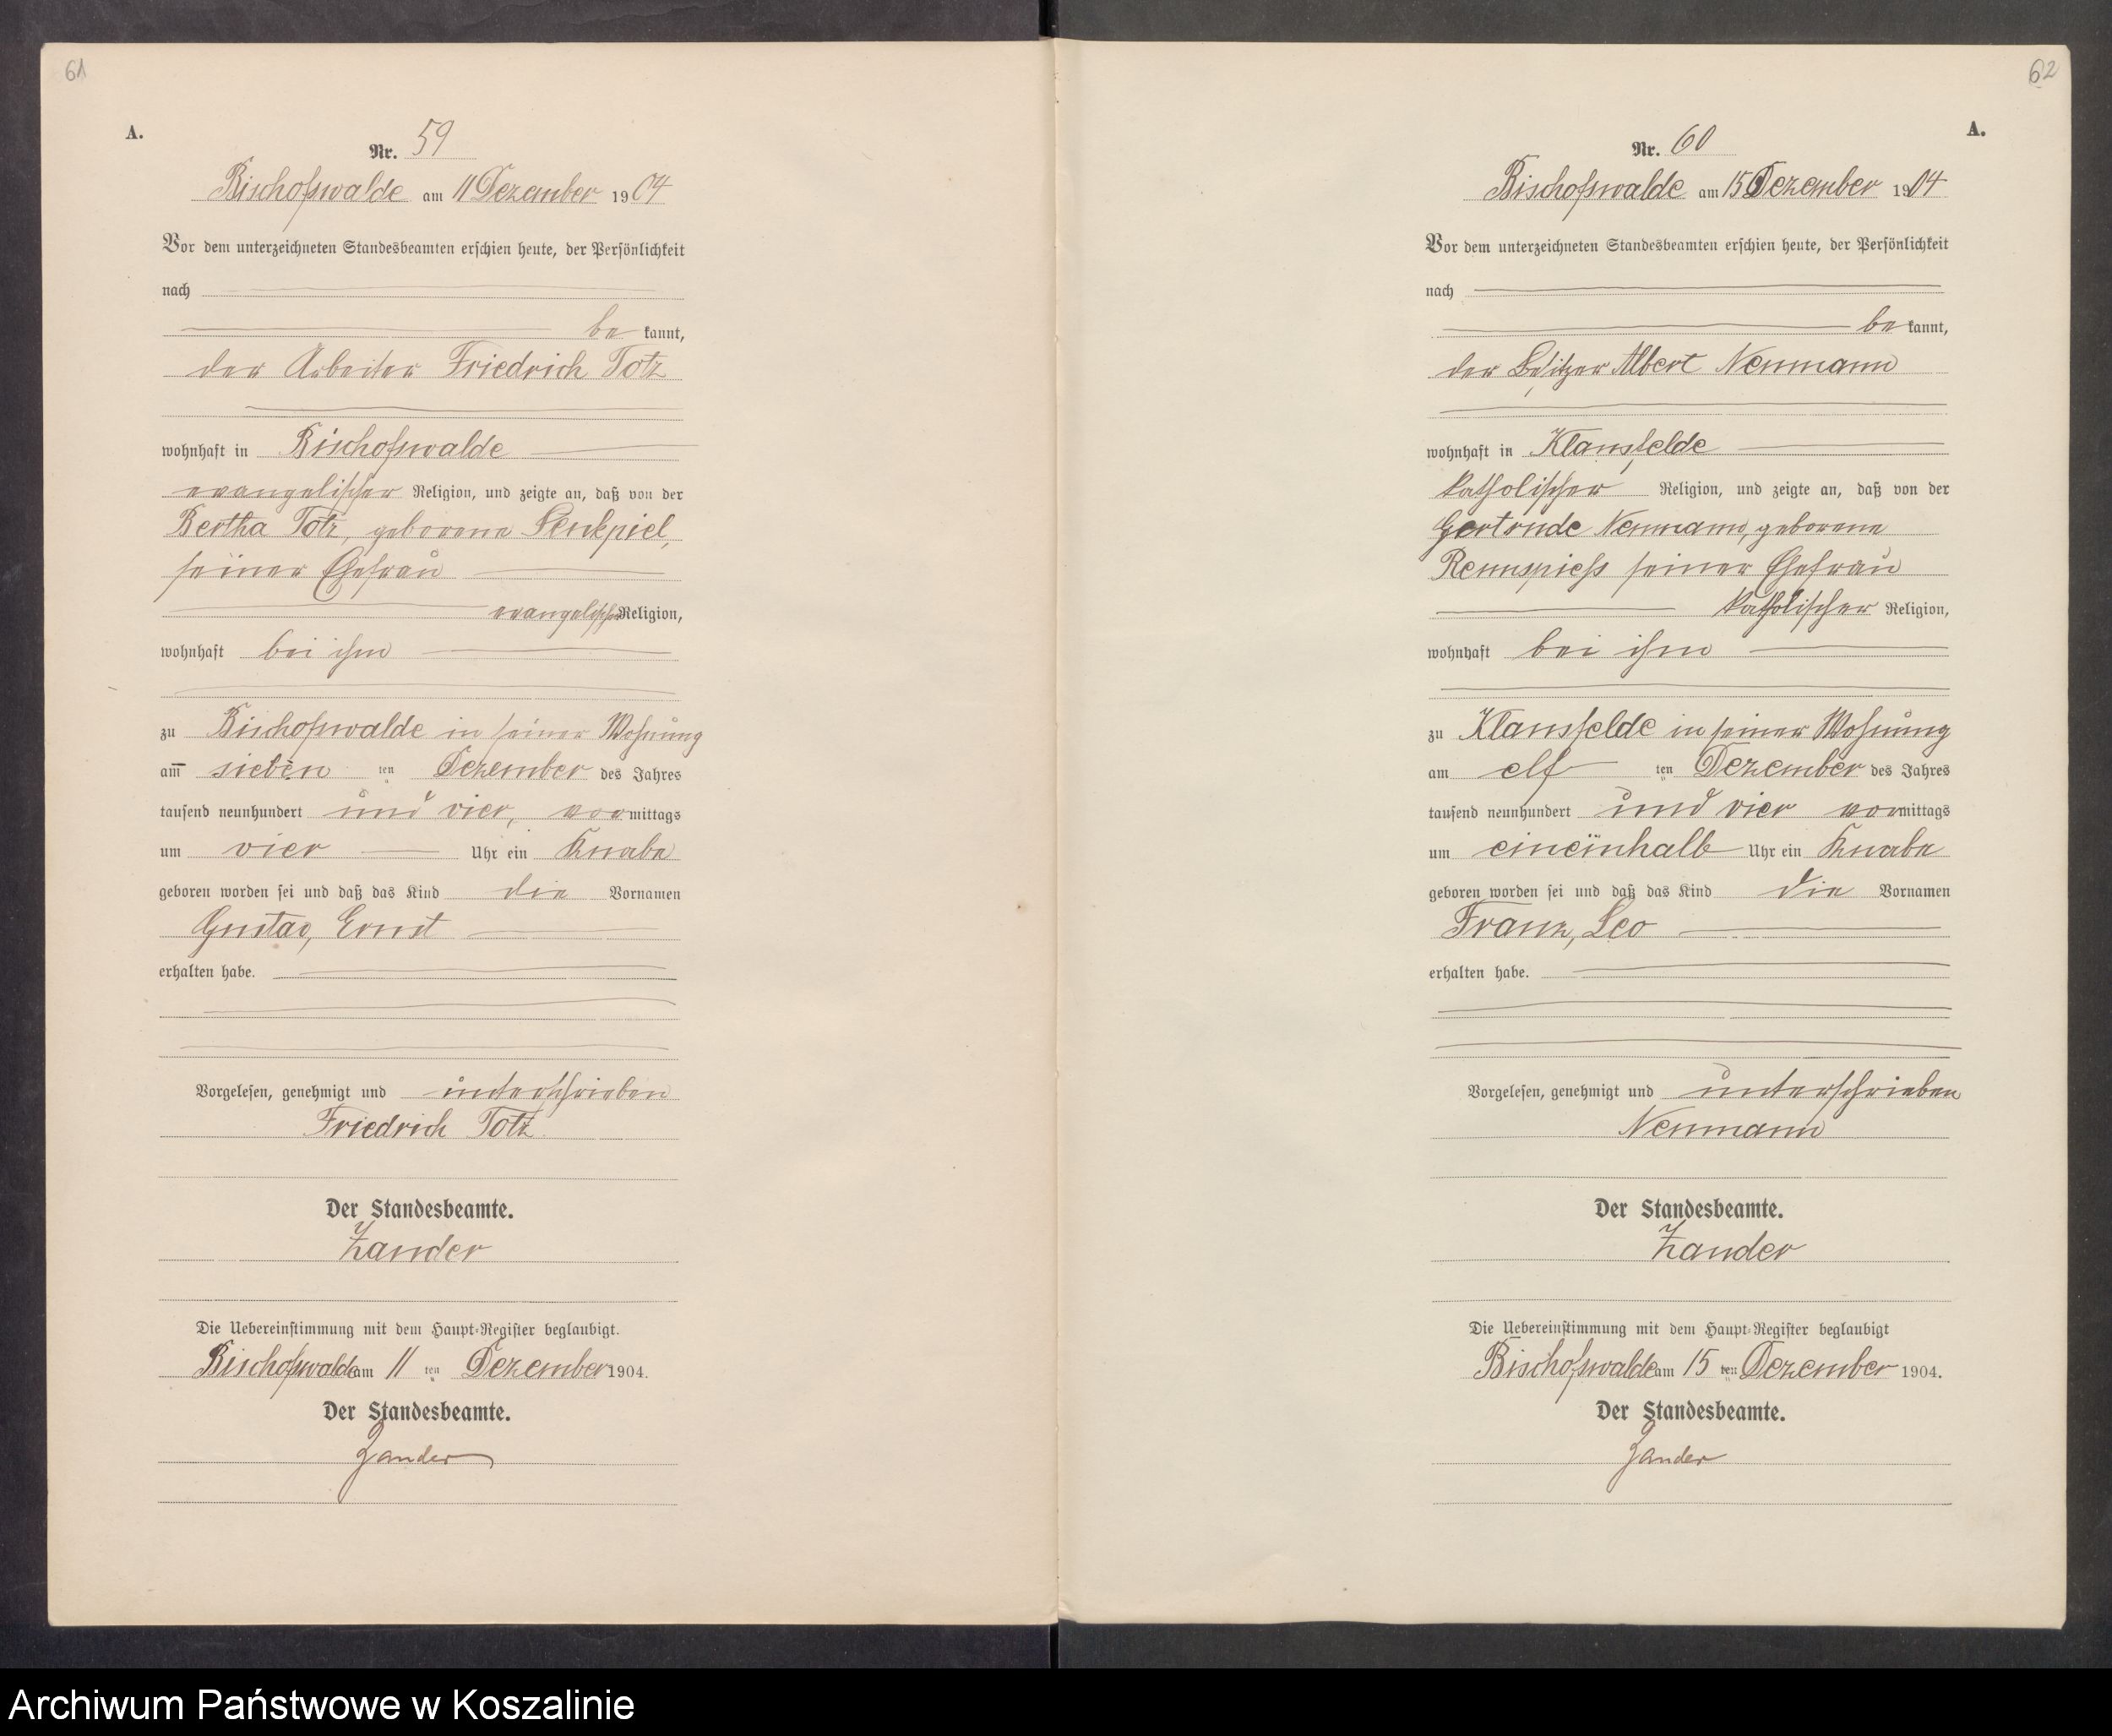 61
A.
Nr. 59
Bischofswalde am 11 Dezember 1904
Vor dem unterzeichneten Standesbeamten erschien heute, der Persönlichkeit
nach
be kannt,
der Arbeiter Friedrich Totz
wohnhaft in Bischofswalde
evangelischer Religion, und zeigte an, daß von der
Bertha Totz, geborene Senkpiel,
seiner Ehefrau
evangelischer Religion,
wohnhaft bei ihm
zu Bischofswalde in seiner Wohnung
am sieben ten Dezember des Jahres
tausend neunhundert und vier, vormittags
um vier Uhr ein Knabe
geboren worden sei und daß das Kind die Vornamen
Gustav, Ernst
erhalten habe.
Vorgelesen, genehmigt und unterschrieben
Friedrich Totz
Der Standesbeamte.
Zander
Die Uebereinstimmung mit dem Haupt-Register beglaubigt.
Bischofswalde am 11 ten Dezember 1904.
Der Standesbeamte.
Zander
62
A.
Nr. 60
Bischofswalde am 15 Dezember 1904
Vor dem unterzeichneten Standesbeamten erschien heute, der Persönlichkeit
nach
be kannt,
der Besitzer Albert Neumann
wohnhaft in Klausfelde
katholischer Religion, und zeigte an, daß von der
Gertrude Neumann, geborene
Rennspiess seiner Ehefrau
katholischer Religion,
wohnhaft bei ihm
zu Klausfelde in seiner Wohnung
am elf ten Dezember des Jahres
tausend neunhundert und vier vormittags
um eineinhalb Uhr ein Knabe
geboren worden sei und daß das Kind die Vornamen
Franz, Leo
erhalten habe.
Vorgelesen, genehmigt und unterschrieben
Neumann
Der Standesbeamte.
Zander
Die Uebereinstimmung mit dem Haupt-Register beglaubigt
Bischofswalde am 15 ten Dezember 1904.
Der Standesbeamte.
Zander
Archiwum Państwowe w Koszalinie